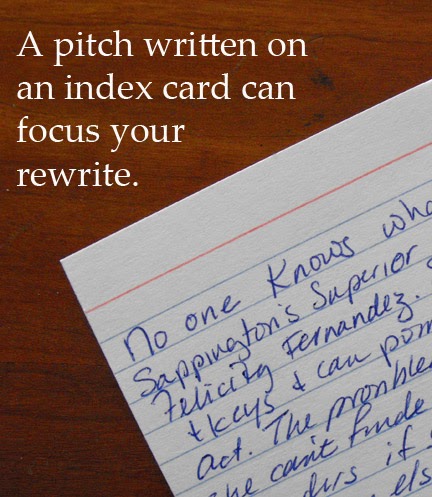 A pitch written on
an index card can
focus your
rewrite.
No one Knows wha
Sappington's Superior
Felicity Fernandez.
+keys + can
act. The pronble
he can't finde
if
els